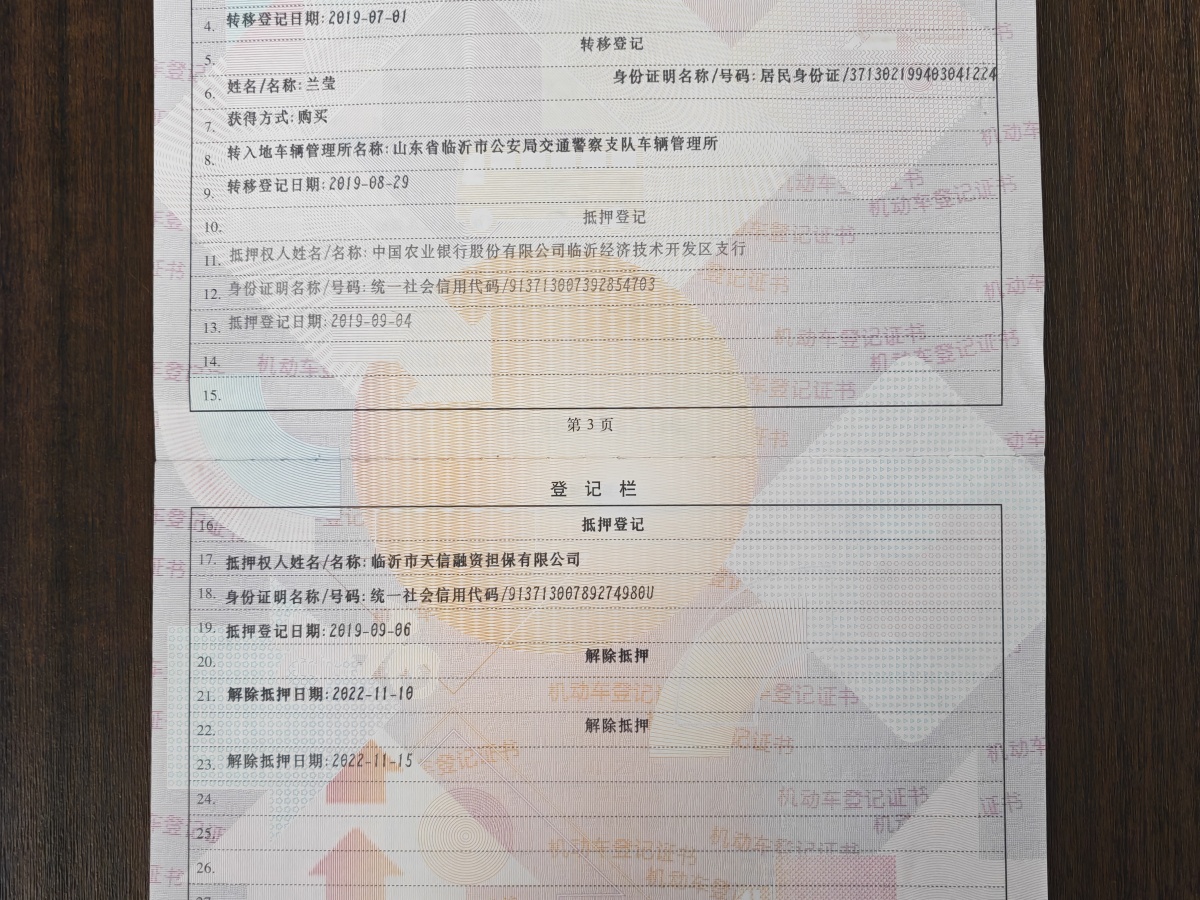 4. 转移登记日期:2019-07-01
5. 转移登记
6. 姓名/名称:兰莹 身份证明名称/号码:居民身份证/371302199403041224
7. 获得方式:购买
8. 转入地车辆管理所名称:山东省临沂市公安局交通警察支队车辆管理所
9. 转移登记日期:2019-08-29
10. 抵押登记
11. 抵押权人姓名/名称:中国农业银行股份有限公司临沂经济技术开发区支行
12. 身份证明名称/号码:统一社会信用代码/913713007392854703
13. 抵押登记日期:2019-09-04
14.
15.
第 3 页
登 记 栏
16. 抵押登记
17. 抵押权人姓名/名称:临沂市天信融资担保有限公司
18. 身份证明名称/号码:统一社会信用代码/91371300789274980U
19. 抵押登记日期:2019-09-06
20. 解除抵押
21. 解除抵押日期:2022-11-10
22. 解除抵押
23. 解除抵押日期:2022-11-15
24.
25.
26.